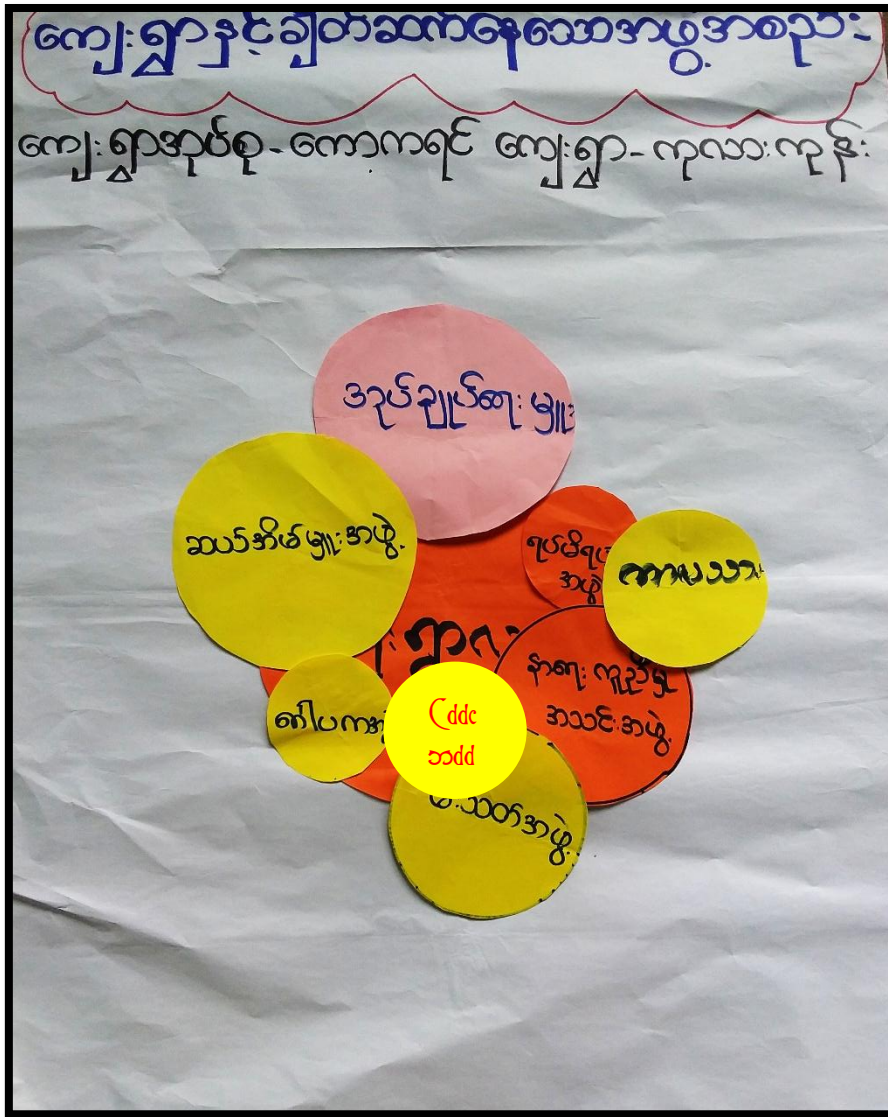 ကျေးရွာနှင့်ချိတ်ဆက်နေသောအဖွဲ့အစည်း
ကျေးရွာအုပ်စု-ကော့ကရင် ကျေးရွာ-ကုလားကုန်း
အုပ်ချုပ်ရေးမှူး
ဆယ်အိမ်မှူးအဖွဲ့
ရပ်မိရပ်
အဖွဲ့
ကာယသား
နာရေးကူညီမှု
အသင်းအဖွဲ့
Cddc
ဘdd
မီးသတ်အဖွဲ့